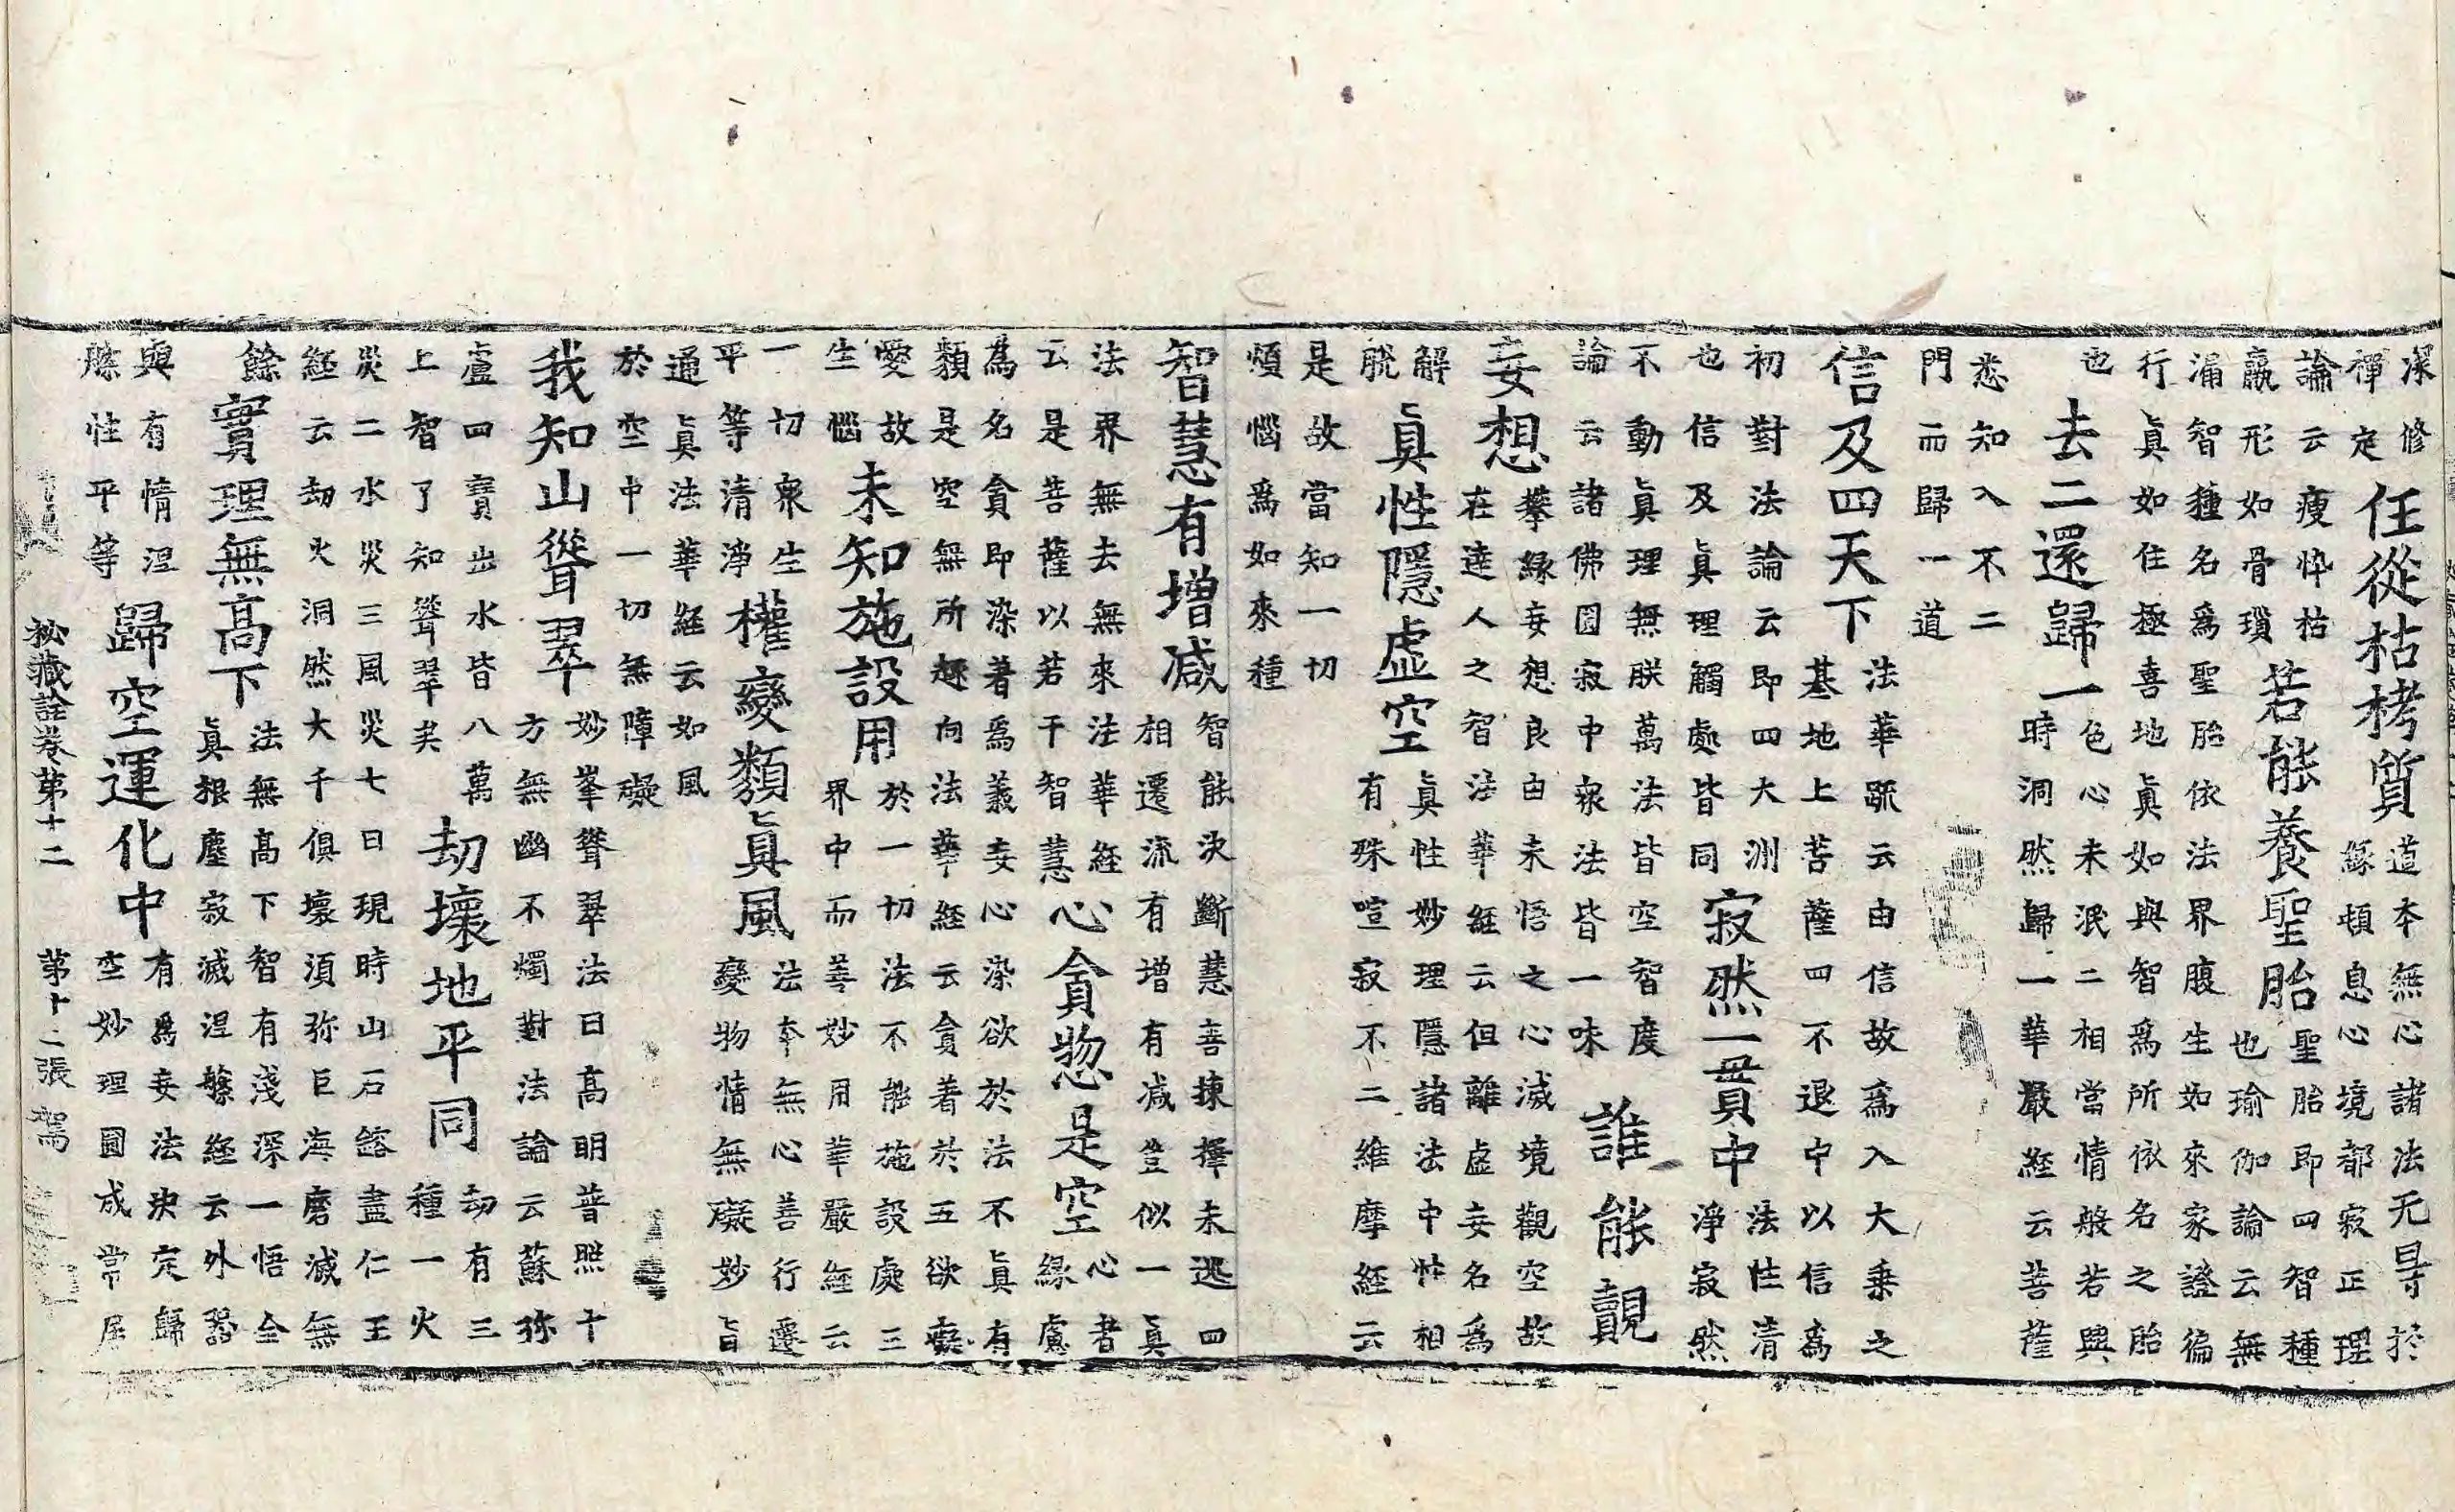 深修
禪定
任從枯栲質
道本無心諸法无㝵於
緣頓息心境都寂正理
論云瘦悴枯
羸形如骨瓚
若能養聖胎
聖胎即四智種
也瑜伽論云無
漏智種名爲聖胎依法界腹生如來家證徧
行眞如住極喜地眞如與智爲所依名之胎
也
去二還歸一
色心未泯二相當情般若與
時洞然歸一華嚴経云菩薩
悉知入不二
門而歸一道
信及四天下
法華䟽云由信故爲入大乗之
基地上菩薩四不退中以信爲
初對法論云即四大洲
也信及眞理觸處皆同
寂然一貫中
法性清
淨寂然
不動眞理無朕萬法皆空智度
論云諸佛圓寂中衆法皆一味
誰能覿
妄想
攀緣妄想良由未悟之心滅境觀空故
在達人之智法華経云但離虛妄名爲
解
脫
眞性隱虛空
眞性妙理隱諸法中性相
有殊喧寂不二維摩経云
是故當知一切
煩惱爲如來種
智慧有增減
智能決斷慧善揀擇未逃四
相遷流有增有減豈似一眞
法界無去無來法華経
云是菩薩以若干智慧
心貪惣是空
心者
緣慮
為名貪即染著爲義妄心染欲於法不眞有
類是空無所趣向法華経云貪著於五欲癡
愛故
生惱
未知施設用
於一切法不能施設處三
界中而善妙用華嚴経云
一切衆生
平等清淨
權變類眞風
法本無心善行遷
變物情無礙妙旨
通眞法華経云如風
於空中一切無障礙
我知山聳翠
妙峯聳翠法日高明普照十
方無幽不燭對法論云蘇弥
盧四寶出水皆八萬
上智了知聳翠矣
劫壞地平同
劫有三
種一火
災二水災三風災七日現時山石鎔盡仁王
経云劫火洞然大千俱壞須弥巨海磨滅無
餘
實理無高下
法無高下智有淺深一悟全
眞根塵寂滅涅槃経云外器
與有情涅
槃性平等
歸空運化中
有爲妄法決定歸
空妙理圓成常居
祕藏詮卷第十二 第十二張 駕